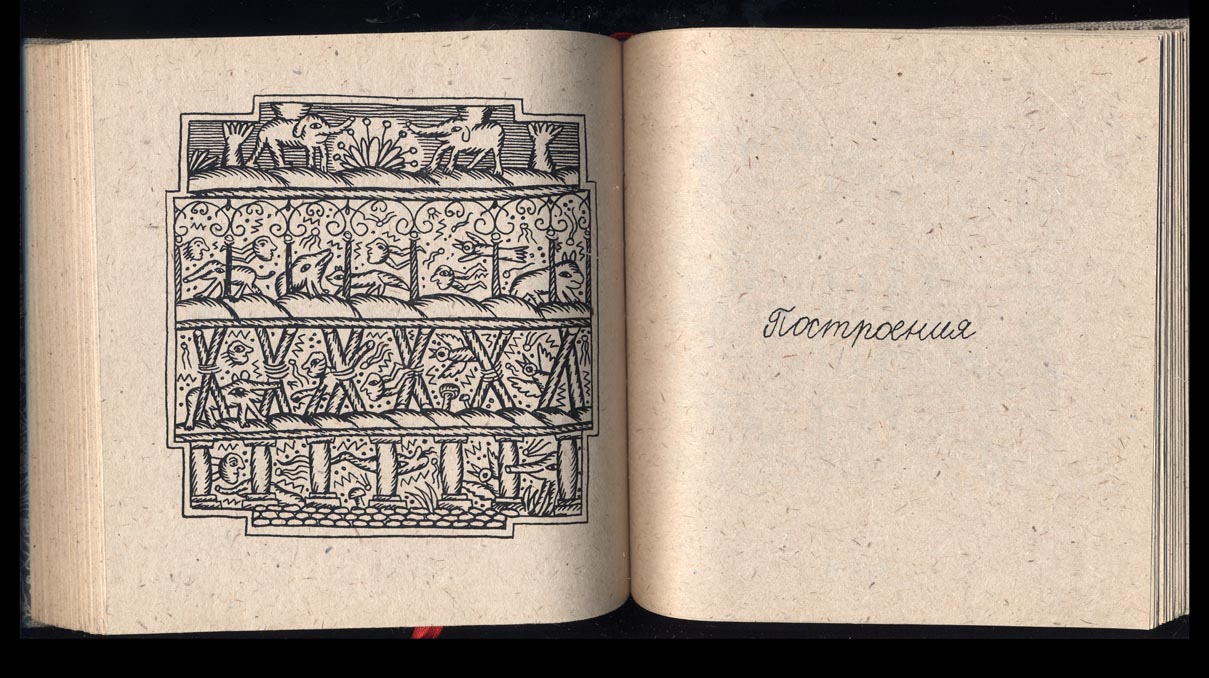 Построения